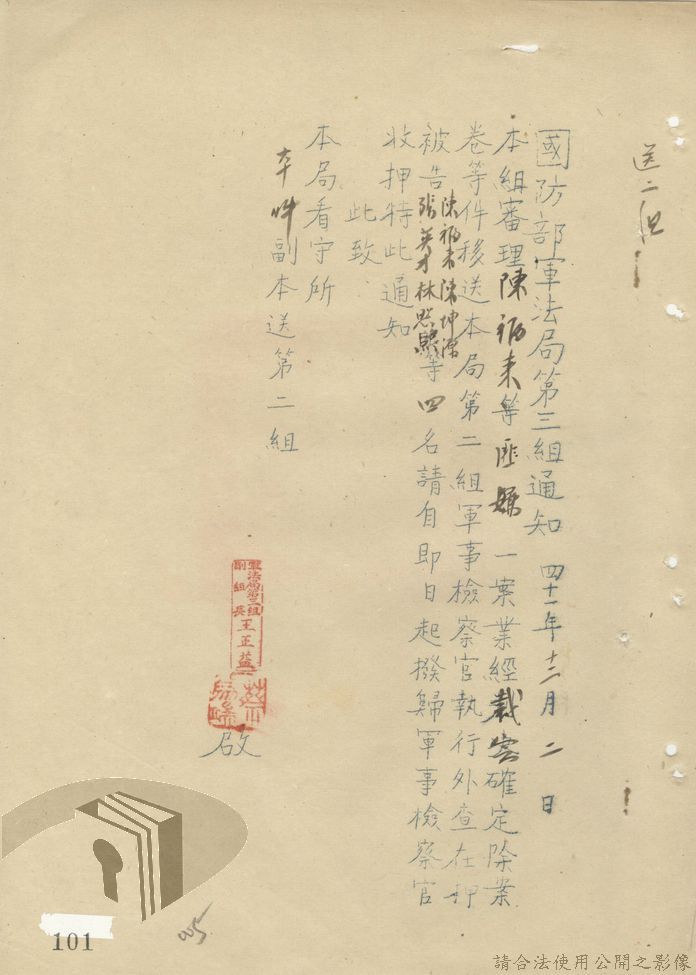 送二組
國防部軍法局第三組通知 四十一年十二月二日
本組審理陳福來等匪嫌一案業經裁定確定除案
卷等件移送本局第二組軍事檢察官執行外查在押
被告陳福來陳坤
張英才林
等四名請自即日起撥歸軍事檢察官
收押特此通知
此致
本局看守所
本件副本送第二組
軍法局第三組
副組長王正益
啟
005
101
請合法使用公開之影像